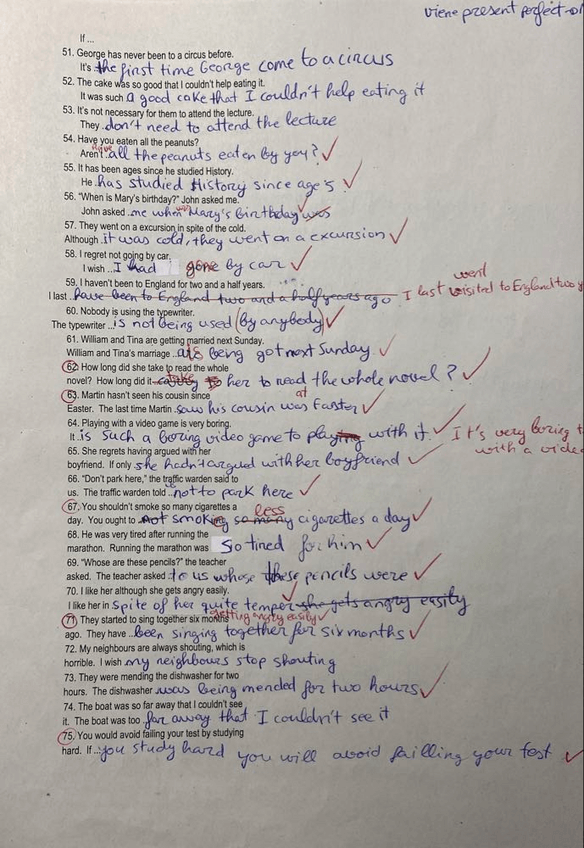 viene present perfect
If ...
51. George has never been to a circus before.
It's the first time George come to a circus
52. The cake was so good that I couldn't help eating it.
It was such a good cake that I couldn't help eating it
53. It's not necessary for them to attend the lecture.
They don't need to attend the lecture
54. Have you eaten all the peanuts?
Aren't all the peanuts eaten by you?
55. It has been ages since he studied History.
He has studied History since age's
56. "When is Mary's birthday?" John asked me.
John asked me when was Mary's Birthday was
57. They went on a excursion in spite of the cold.
Although it was cold, they went on a excursion
58. I regret not going by car.
I wish ...I had gone by car
59. I haven't been to England for two and a half years.
went
I last have been to England two and a half years ago I last visited to England two y
60. Nobody is using the typewriter.
The typewriter ...is not being used (by anybody)
61. William and Tina are getting married next Sunday.
William and Tina's marriage are being got next Sunday
62. How long did she take to read the whole
novel? How long did it take her to read the whole novel?
63. Martin hasn't seen his cousin since
at
Easter. The last time Martin saw his cousin was Easter
64. Playing with a video game is very boring.
It is such a boring video game to play with it. It's very boring t
with a vide
65. She regrets having argued with her
boyfriend. If only she hadn't argued with her boyfriend
66. "Don't park here," the traffic warden said to
us. The traffic warden told ..not to park here
67. You shouldn't smoke so many cigarettes a
less
day. You ought to not smoking so many cigarettes a day
68. He was very tired after running the
marathon. Running the marathon was so tired for him
69. "Whose are these pencils?" the teacher
asked. The teacher asked to us whose these pencils were
70. I like her although she gets angry easily.
I like her in spite of her quite temper she gets angry easily
getting angry easily
71. They started to sing together six months
ago. They have ..been singing together for six months
72. My neighbours are always shouting, which is
horrible. I wish my neighbours stop shouting
73. They were mending the dishwasher for two
hours. The dishwasher was being mended for two hours
74. The boat was so far away that I couldn't see
it. The boat was too far away that I couldn't see it
75. You would avoid failing your test by studying
hard. If ..you study hard you will avoid failling your test